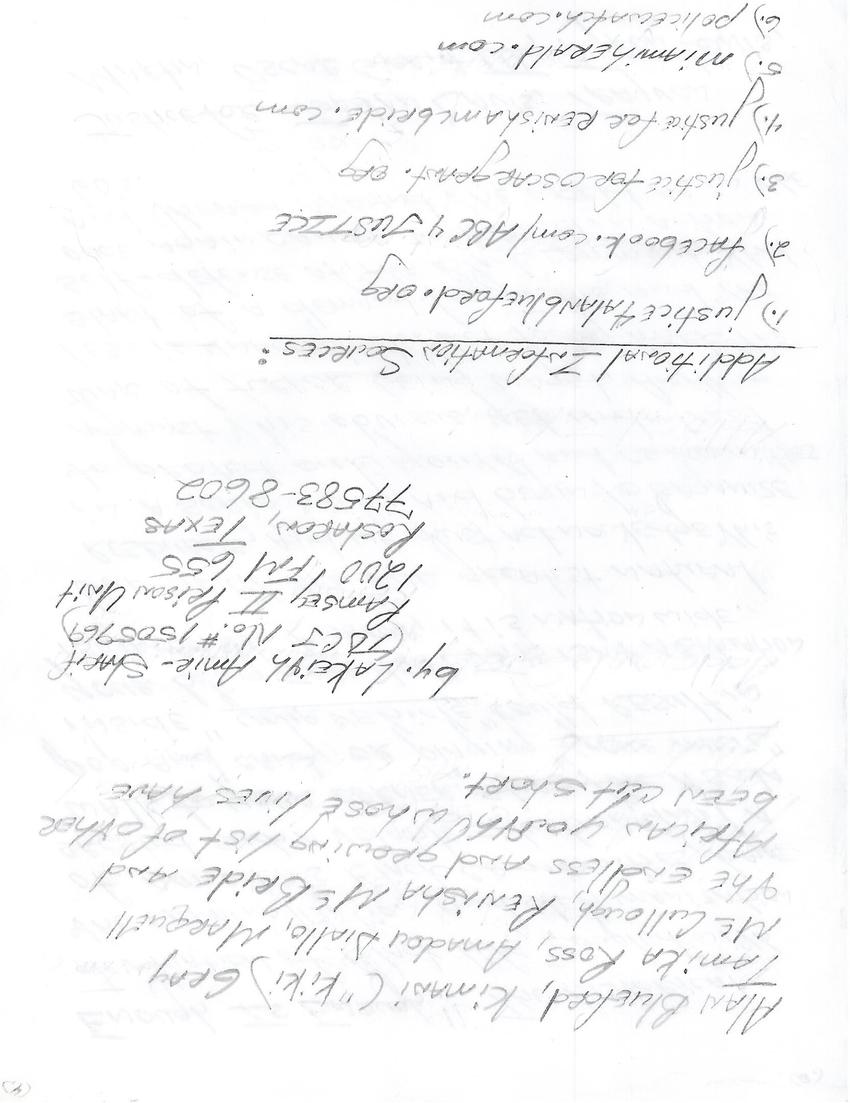 (4)
Alan Blueford, Kimani ("Kiki") Gray
Tamika Ross, Amadou Diallo, Marquell
McCullough, Renisha McBride and
the endless and growing list of other
African youth whose lives have
been cut short.
by: Lakeith Amir-Sharif
(TDCJ No. #1505969)
Ramsey II Prison Unit
1200 FM 655
Rosharon, Texas
77583-8602
Additional Information Sources:
1.) justice4alanblueford.org
2.) facebook.com/ABC4JUSTICE
3.) justiceforoscargrant.org
4.) justiceforRenishamcbride.com
5.) miamiherald.com
6.) policewatch.com